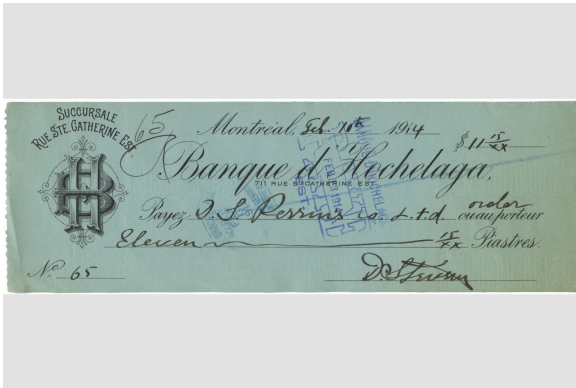 SUCCURSALE
RUE STE. CATHERINE EST.
65
Montréal, Feb. 10th 1914 $11 15/xx
Banque d'Hochelaga,
711 RUE STE CATHERINE EST
order
Payez D. S. Perrins Co. Ltd. ou au porteur
Eleven 15/xx Piastres.
No. 65